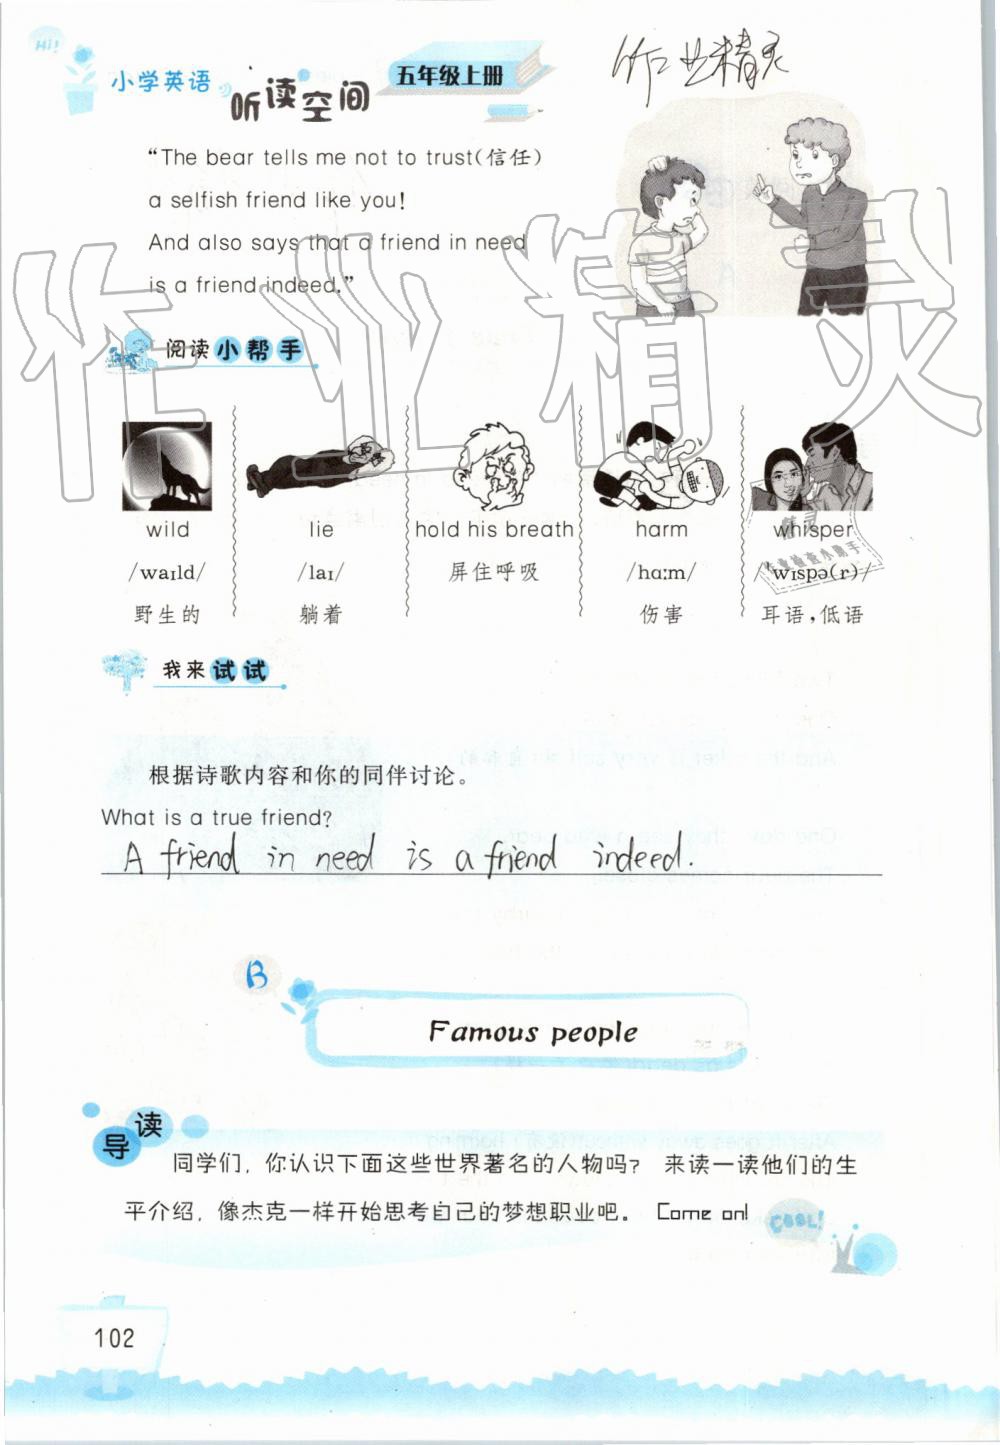 Hi!
小学英语
听读空间
五年级上册
作业精灵
“The bear tells me not to trust(信任)
a selfish friend like you!
And also says that a friend in need
is a friend indeed.”
作业精灵
阅读小帮手
wild
lie
hold his breath
harm
whisper
/waɪld/
/laɪ/
屏住呼吸
/hɑːm/
/ˈwɪspə(r)/
野生的
躺着
伤害
耳语,低语
我来试试
根据诗歌内容和你的同伴讨论。
What is a true friend?
A friend in need is a friend indeed.
B
Famous people
导读
同学们，你认识下面这些世界著名的人物吗？ 来读一读他们的生
平介绍，像杰克一样开始思考自己的梦想职业吧。 Come on!
COOL!
102